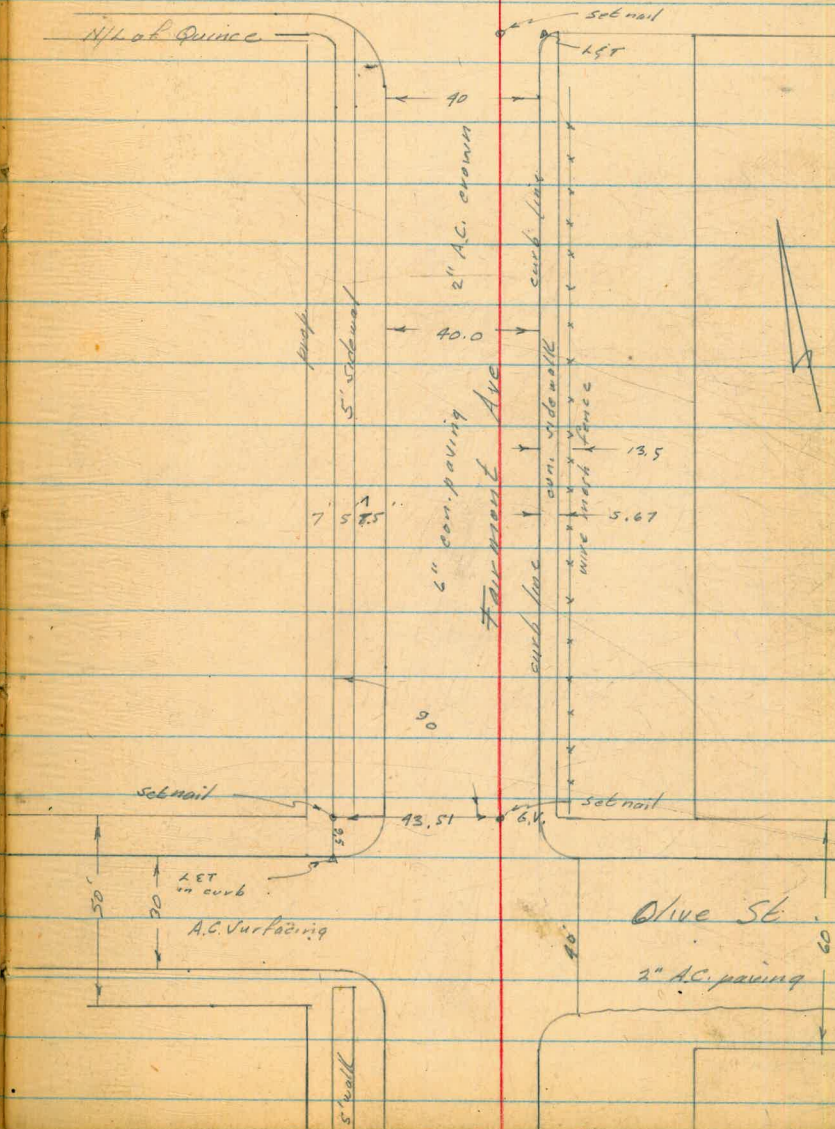 set nail
N/L of Quince
L&T
40
2" A.C. crown
curb line
40.0
prop
5' sidewal
Fairmont Ave
6" con. paving
con. sidewalk
wire mesh fence
13.5
5.67
7' 5' 7.5'
curb line
90
set nail
set nail
43.51
G.V.
9.5
L&T
in curb
50'
30
A.C. Surfacing
Olive St.
40'
60'
2" A.C. paving
5' walk